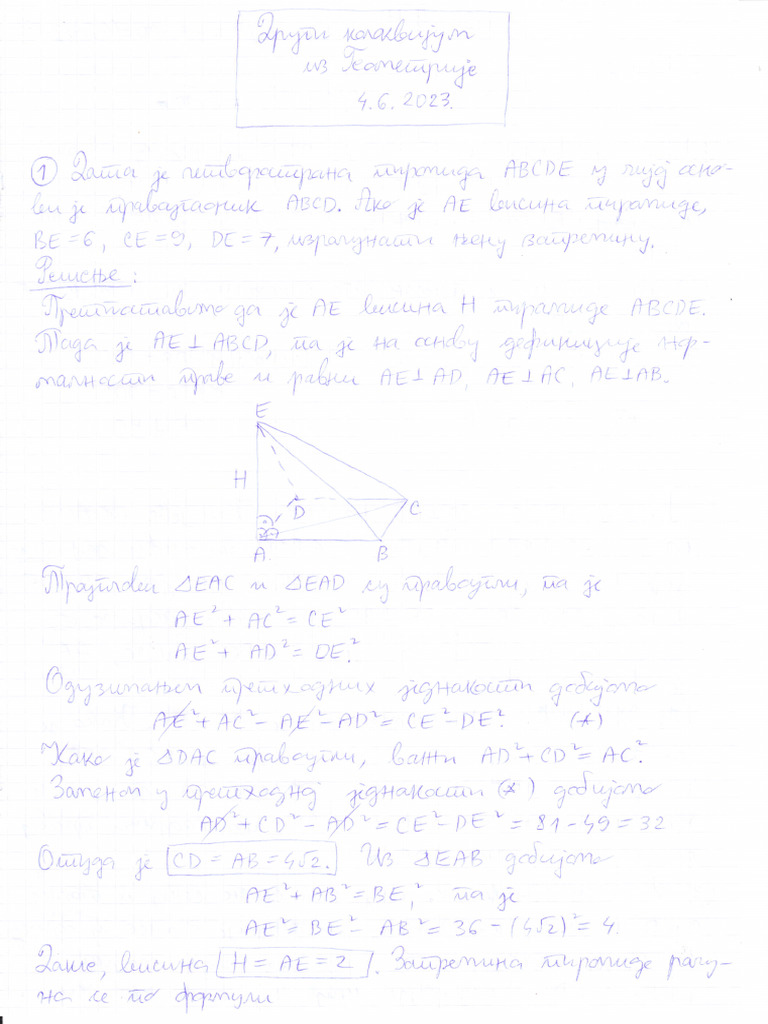 Други колоквијум
из Геометрије
4.6.2023.
① Дата је четворострана пирамида ABCDE у чијој осно-
ви је правоугаоник ABCD. Ако је AE висина пирамиде,
BE=6, CE=9, DE=7, израчунати њену запремину.
Решење:
Претпоставимо да је AE висина H пирамиде ABCDE.
Тада је AE⊥ABCD, па је на основу дефиниције нор-
малности праве и равни AE⊥AD, AE⊥AC, AE⊥AB.
E
H
D
C
A
B
Троуглови △EAC и △EAD су правоугли, па је
AE²+AC²=CE²
AE²+AD²=DE².
Одузимањем претходних једнакости добијамо
AE²+AC²-AE²-AD²=CE²-DE². (*)
Како је △DAC правоугли, важи AD²+CD²=AC².
Заменом у претходној једнакости (*) добијамо
AD²+CD²-AD²=CE²-DE²=81-49=32
Отуда је CD=AB=4√2. Из △EAB добијамо
AE²+AB²=BE², па је
AE²=BE²-AB²=36-(4√2)²=4.
Дакле, висина H=AE=2. Запремина пирамиде рачу-
на се по формули